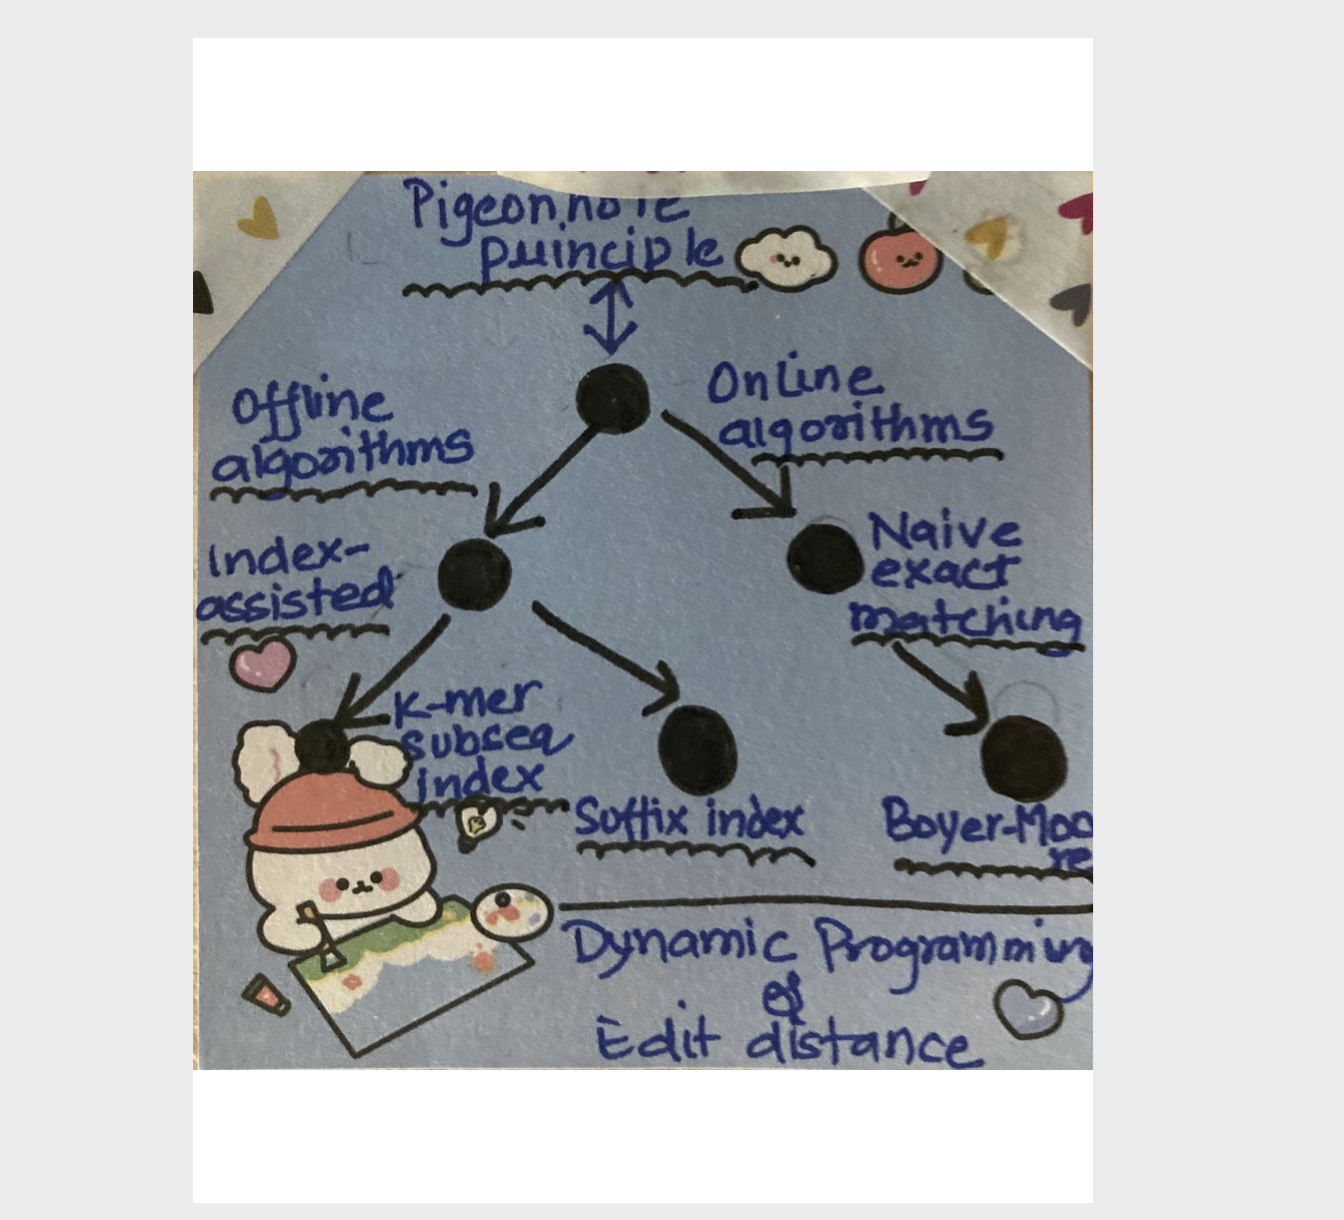 Pigeonhole
principle
Offline
algorithms
Online
algorithms
Index-
assisted
Naive
exact
matching
K-mer
subseq
index
Suffix index
Boyer-Moo
re
Dynamic Programming
&
Edit distance